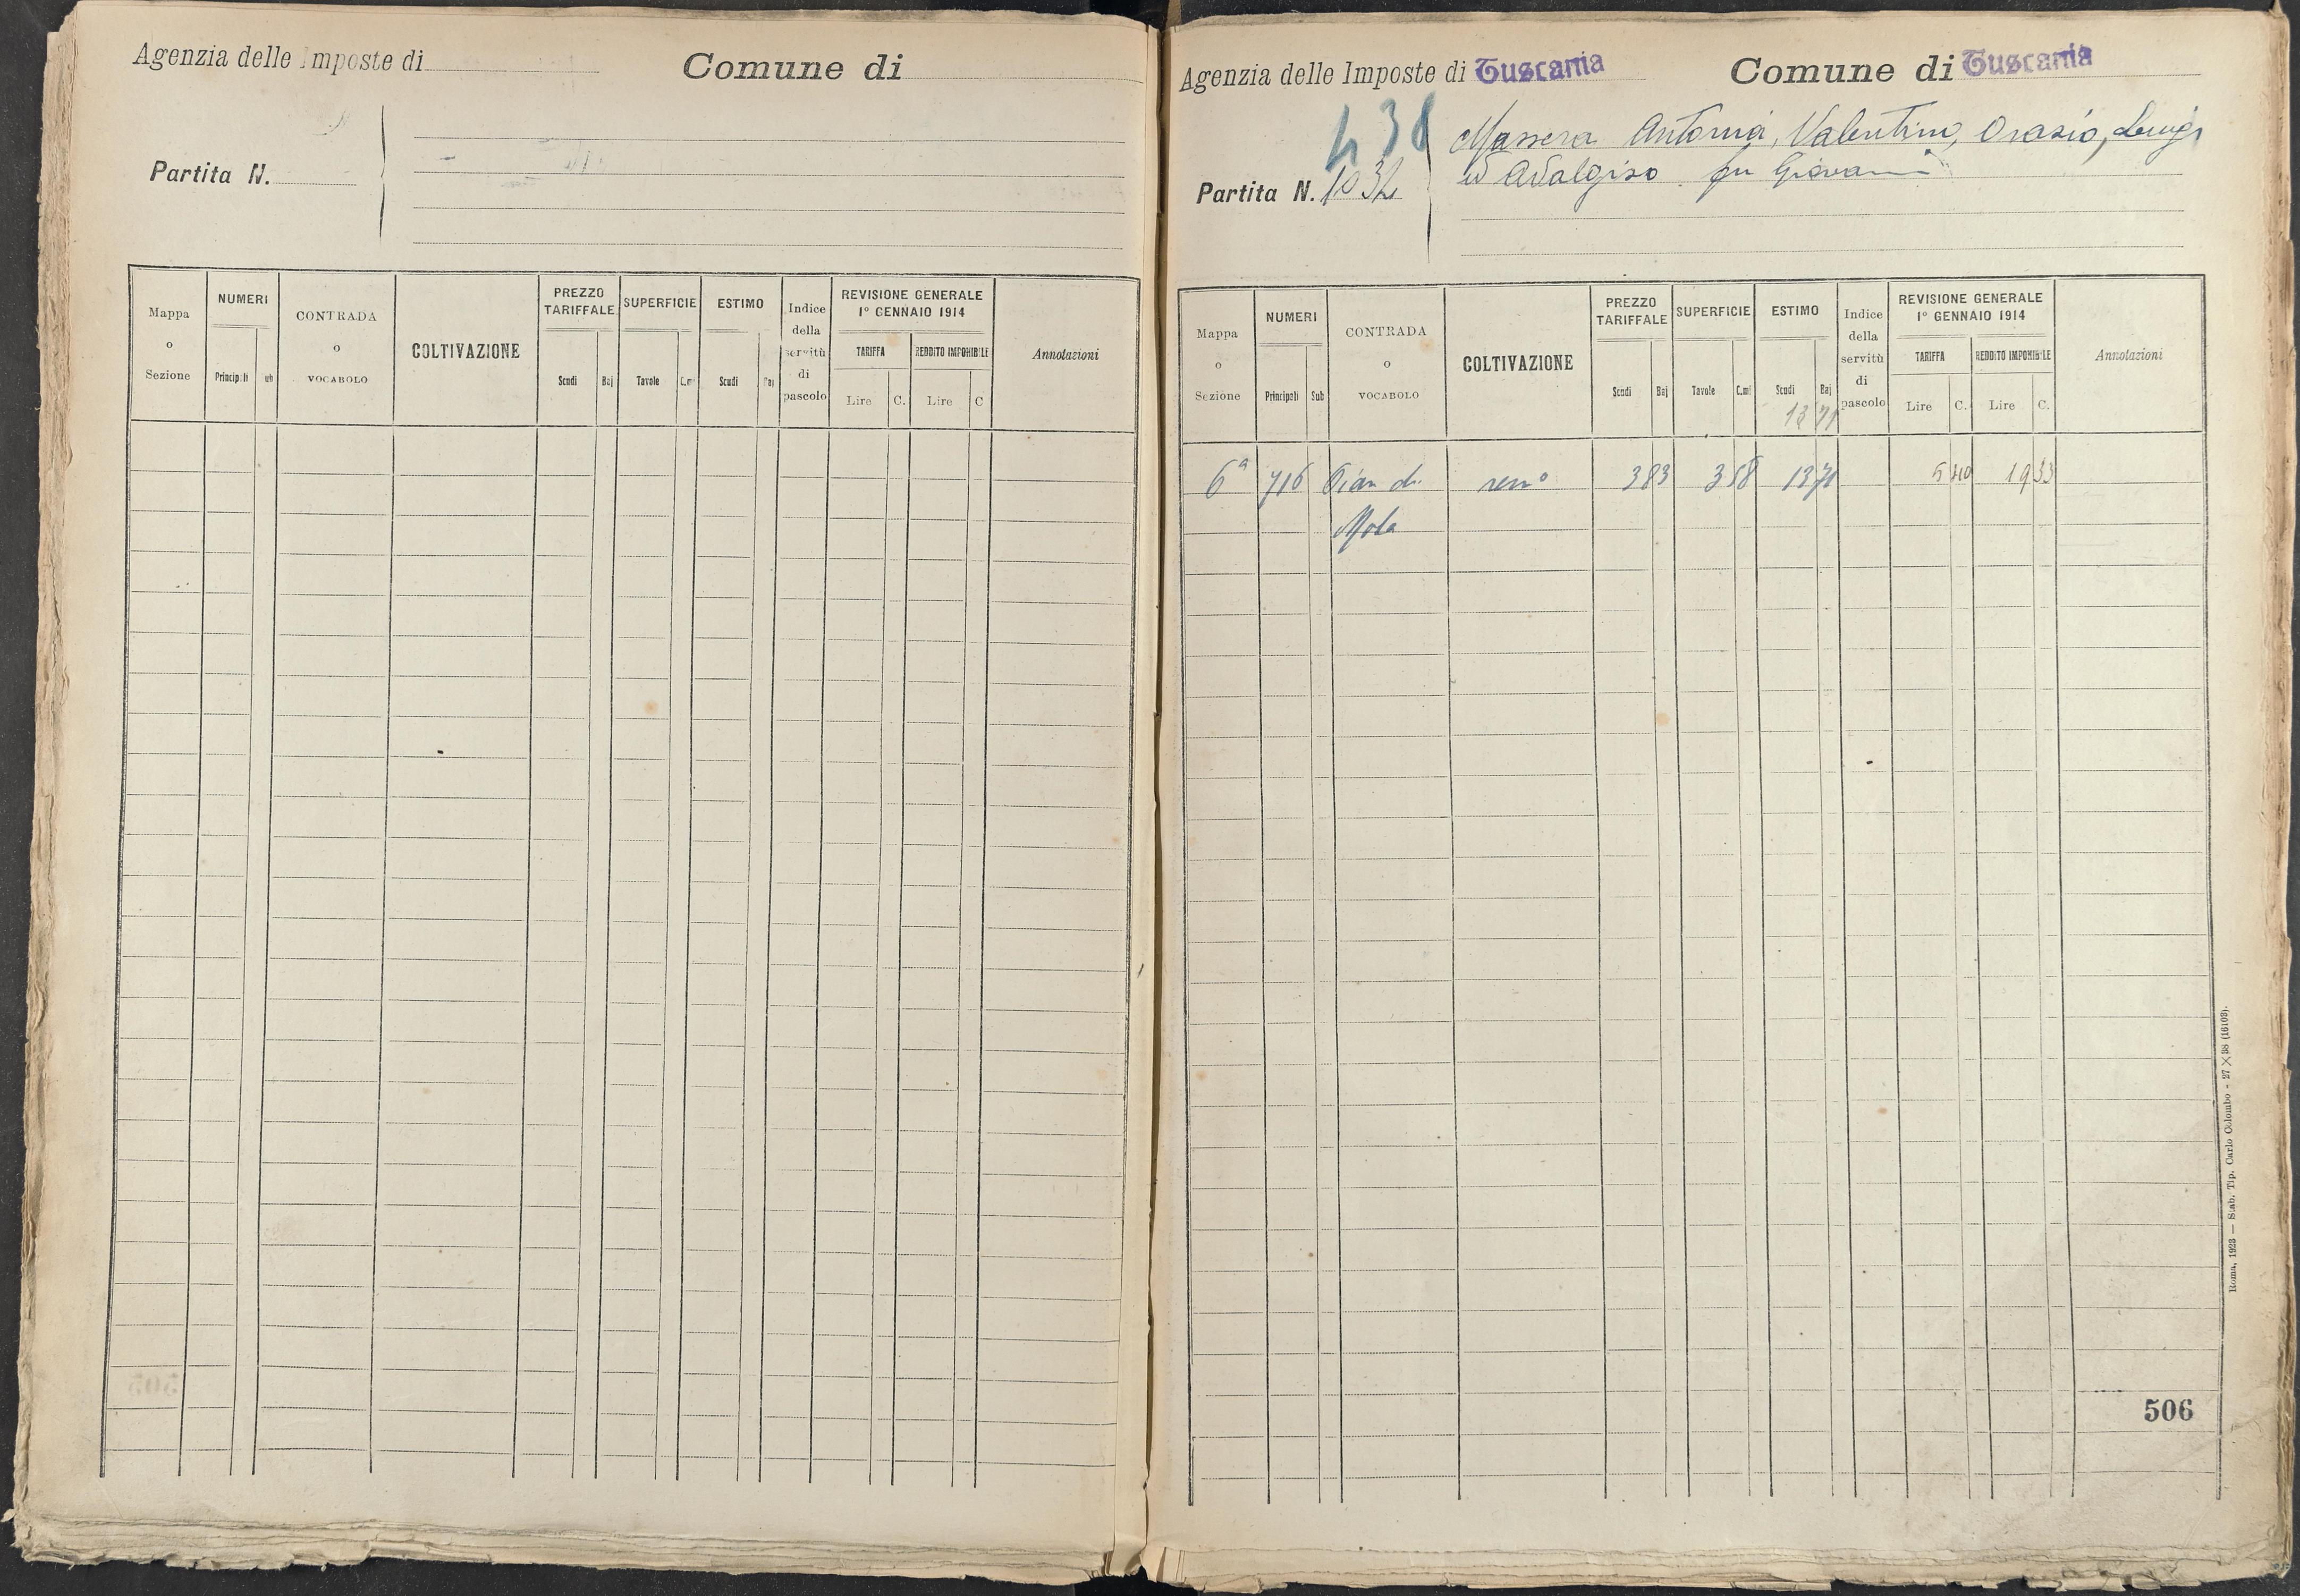 Agenzia delle Imposte di
Comune di
Partita N.
Mappa o Sezione
NUMERI
Principali
CONTRADA o VOCABOLO
COLTIVAZIONE
PREZZO TARIFFALE
Scudi Baj
SUPERFICIE
Tavole C.mi
ESTIMO
Scudi Baj
Indice della servitù di pascolo
REVISIONE GENERALE
1º GENNAIO 1914
TARIFFA
Lire C.
REDDITO IMPONIBILE
Lire C
Annotazioni
Agenzia delle Imposte di Tuscania
Comune di Tuscania
438
Partita N. 1032
Massera Antonia, Valentino, Orazio, Luigi
ed Adalgiso fu Giovanni
Mappa o Sezione
NUMERI
Principali Sub
CONTRADA o VOCABOLO
COLTIVAZIONE
PREZZO TARIFFALE
Scudi Baj
SUPERFICIE
Tavole C.mi
ESTIMO
Scudi Baj
13 71
Indice della servitù di pascolo
REVISIONE GENERALE
1º GENNAIO 1914
TARIFFA
Lire C.
REDDITO IMPONIBILE
Lire C.
Annotazioni
6ª 716 Pian di semº 3 83 3 58 13 71 5 40 19 33
Mola
Roma, 1923 — Stab. Tip. Carlo Colombo - 27 × 38 (16103).
506